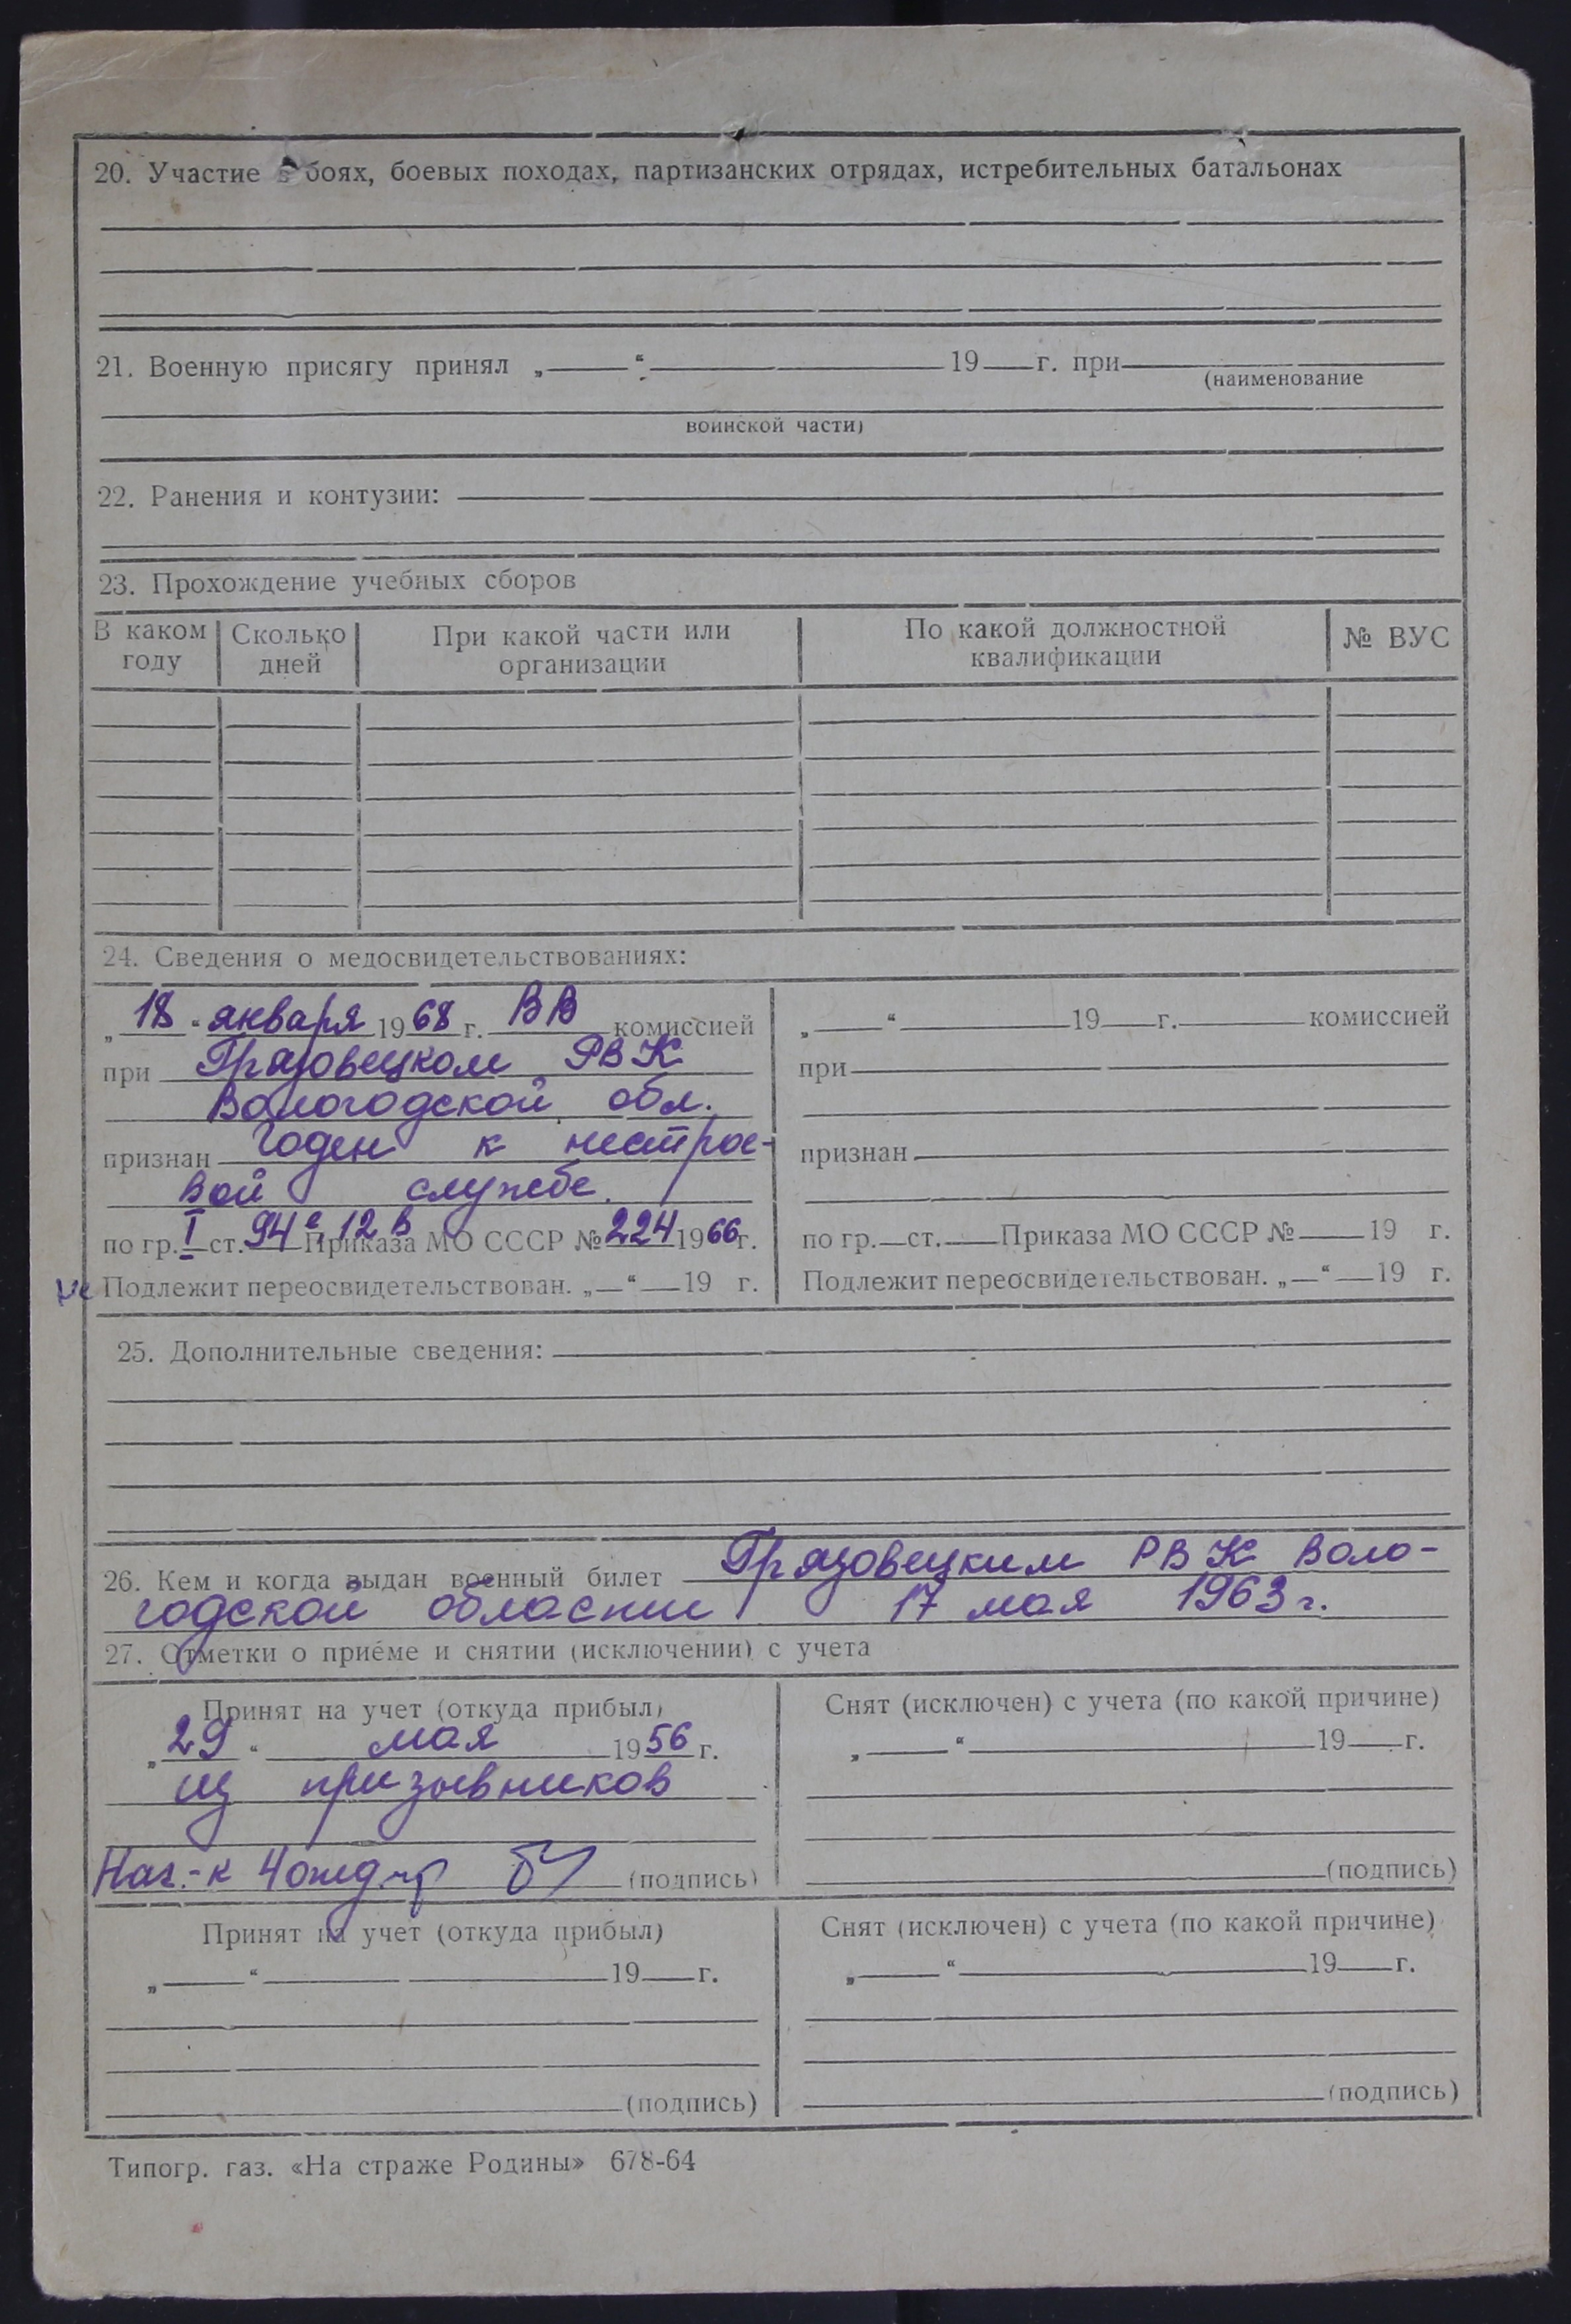 20. Участие в боях, боевых походах, партизанских отрядах, истребительных батальонах
21. Военную присягу принял „ “ 19 г. при
(наименование
воинской части)
22. Ранения и контузии:
23. Прохождение учебных сборов
В каком году Сколько дней При какой части или организации По какой должностной квалификации № ВУС
24. Сведения о медосвидетельствованиях:
„18“ января 1968 г. ВВ комиссией
при Грязовецком РВК
Вологодской обл.
признан годен к нестрое-
вой службе.
по гр. I ст. 94е, 12в Приказа МО СССР № 224 1966г.
не Подлежит переосвидетельствован. „ “ 19 г.
„ “ 19 г. комиссией
при
признан
по гр. ст. Приказа МО СССР № 19 г.
Подлежит переосвидетельствован. „ “ 19 г.
25. Дополнительные сведения:
26. Кем и когда выдан военный билет Грязовецким РВК Воло-
годской области 17 мая 1963 г.
27. Отметки о приёме и снятии (исключении) с учета
Принят на учет (откуда прибыл)
„29“ мая 1956 г.
из призывников
Нач.-к 4 (подпись)
Снят (исключен) с учета (по какой причине)
„ “ 19 г.
(подпись)
Принят на учет (откуда прибыл)
„ “ 19 г.
(подпись)
Снят (исключен) с учета (по какой причине)
„ “ 19 г.
(подпись)
Типогр. газ. «На страже Родины» 678-64